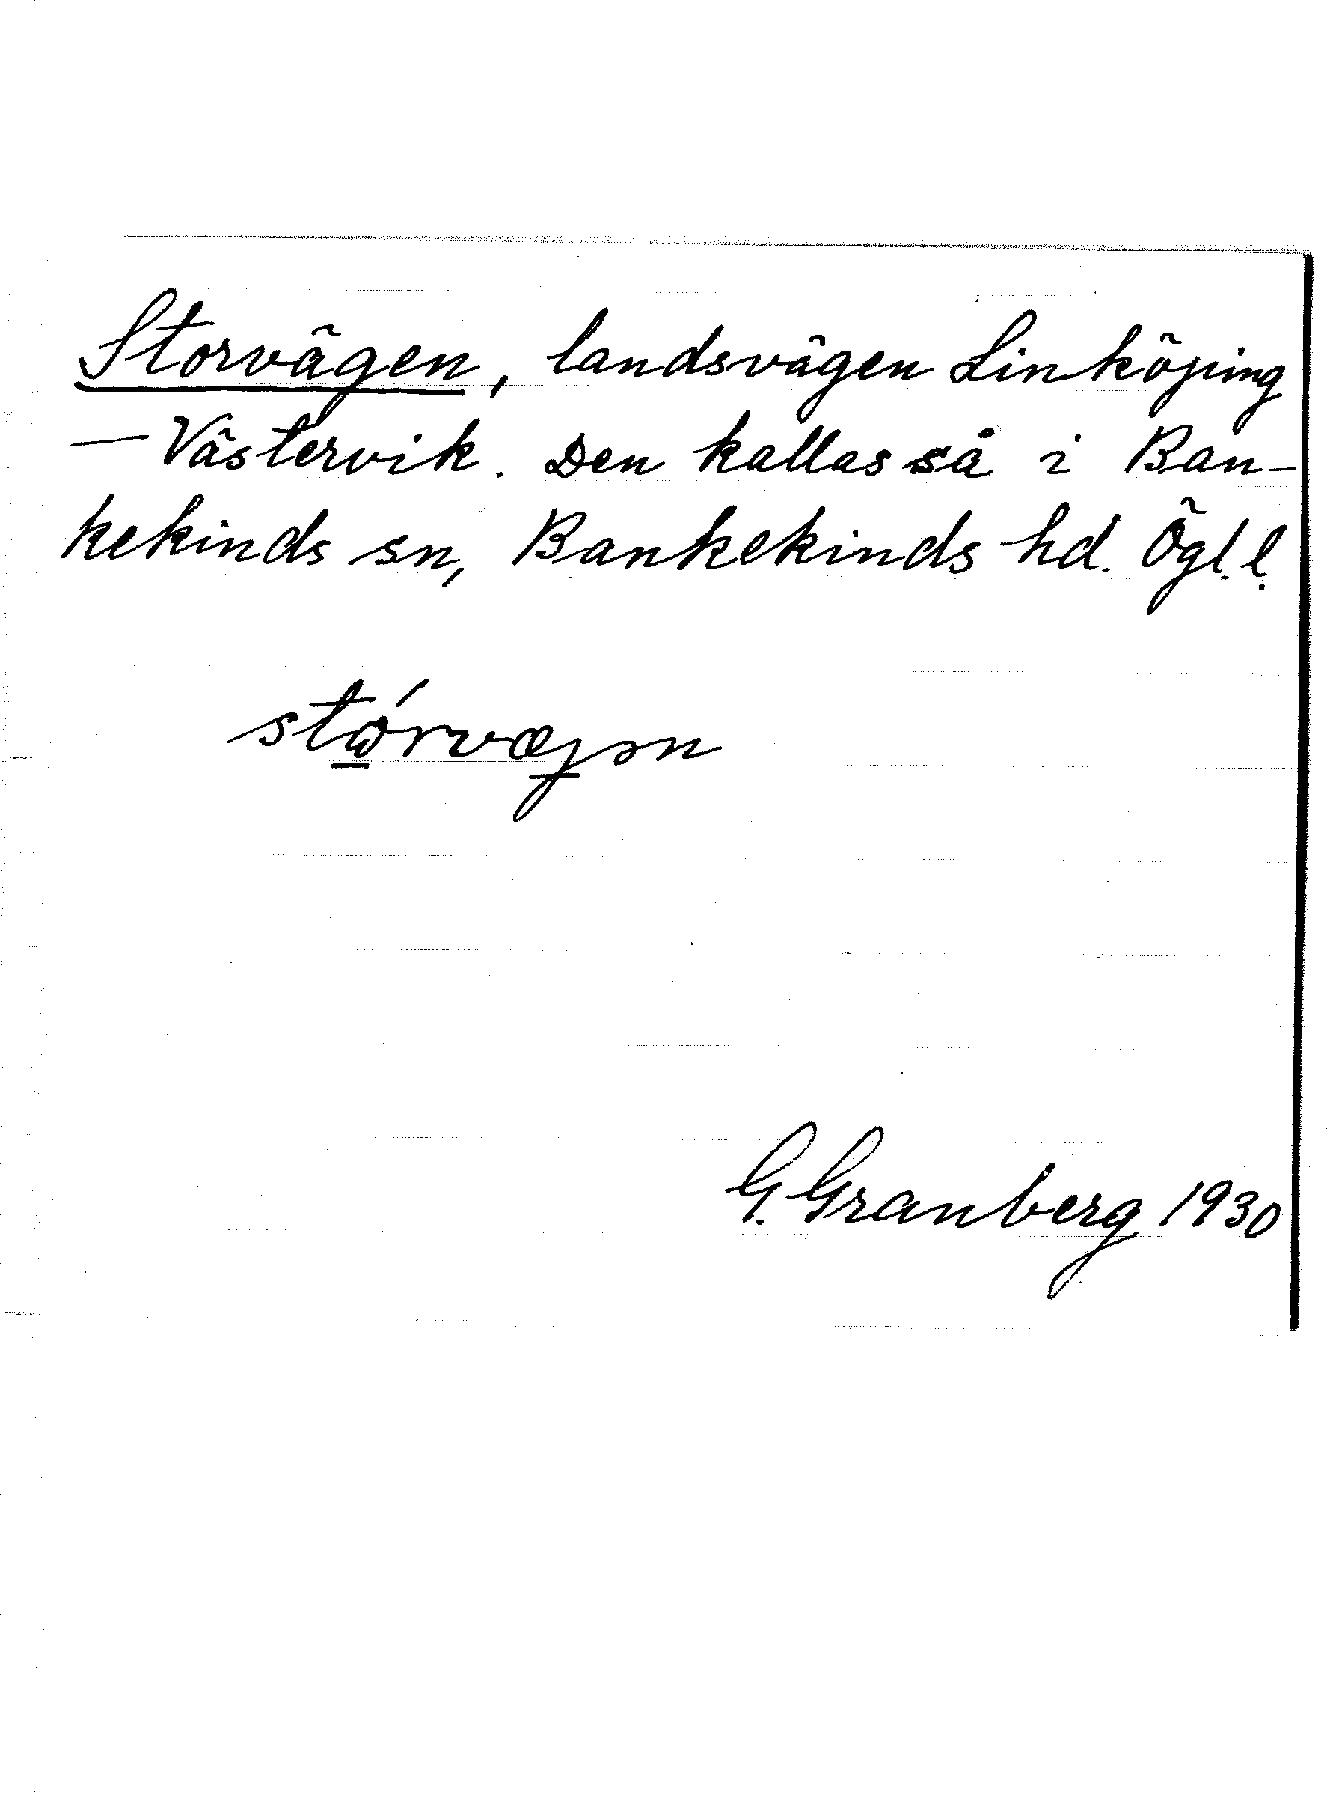 Storvägen, landsvägen Linköping
— Västervik. Den kallas så i Ban-
kekinds sn, Bankekinds hd. Ögl. l.
stώ̲rvæȷən
G. Granberg 1930